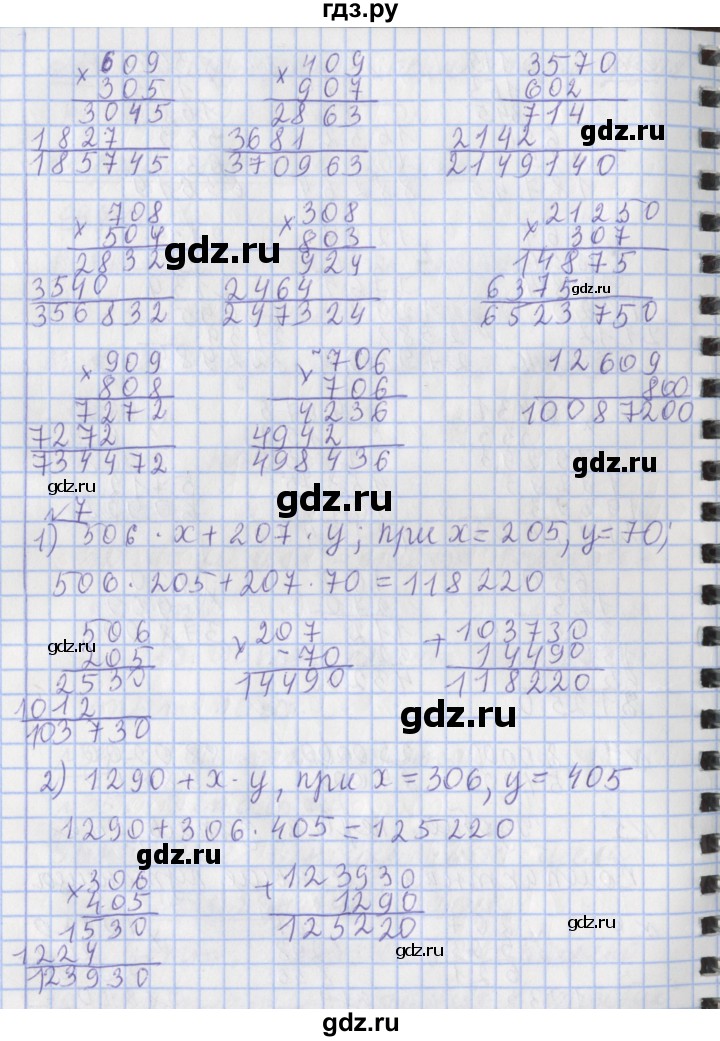 гдз.ру
× 609 × 409 3570
305 907 602
3045 2863 714
1827 3681 2142
185745 370963 2149140
gdz.ru gdz.ru
× 708 × 308 × 21250
504 803 307
2832 924 14875
3540 2464 6375
356832 247324 6523750
gdz.ru gdz.ru
× 909 × 706 12609
808 706 800
7272 4236 10087200
7272 4942
734472 498436
gdz.ru gdz.ru gdz.ru
√7
1) 506 · x + 207 · y ; при x = 205, y = 70;
506 · 205 + 207 · 70 = 118220
506 × 207 + 103730
205 70 14490
2530 14490 118220
1012
103730
gdz.ru gdz.ru
2) 1290 + x · y, при x = 306, y = 405
1290 + 306 · 405 = 125220
gdz.ru
× 306 + 123930
405 1290
1530 125220
1224
123930
gdz.ru gdz.ru
gdz.ru